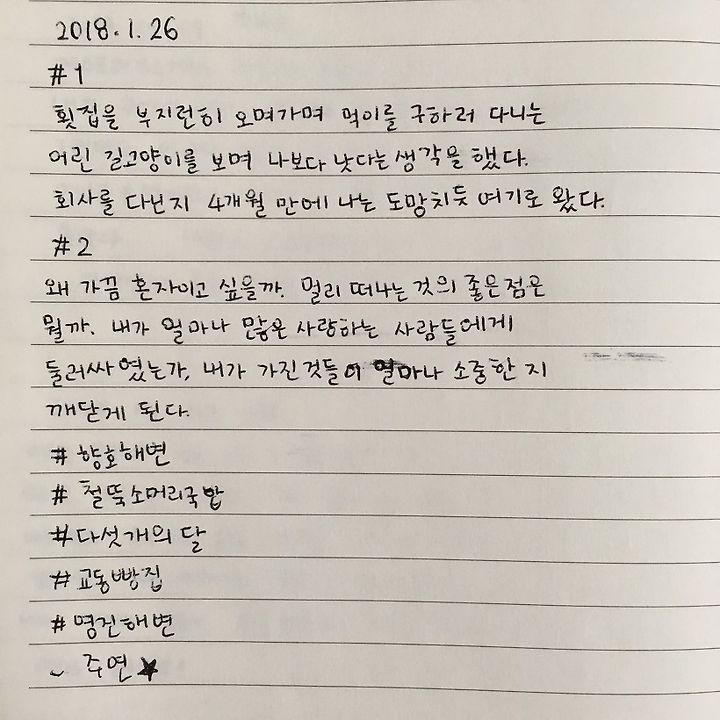 2018.1.26
#1
횟집을 부지런히 오며가며 먹이를 구하러 다니는
어린 길고양이를 보며 나보다 낫다는 생각을 했다.
회사를 다닌지 4개월 만에 나는 도망치듯 여기로 왔다.
#2
왜 가끔 혼자이고 싶을까. 멀리 떠나는 것의 좋은점은
뭘까. 내가 얼마나 많은 사랑하는 사람들에게
둘러싸였는가, 내가 가진것들이 얼마나 소중한 지
깨닫게 된다.
# 향호해변
# 철뚝소머리국밥
#다섯개의 달
#교동빵집
#영진해변
주연★